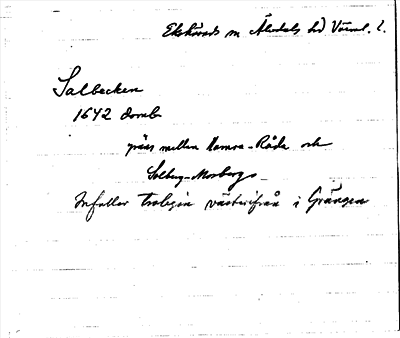 Ekshärads sn Älvdals hd Värml. l.
Salbecken
1642 domb
gräns mellan Hamra-Råda och
Solberg-Mosbergs
Infaller troligen västerifrån i Grängen